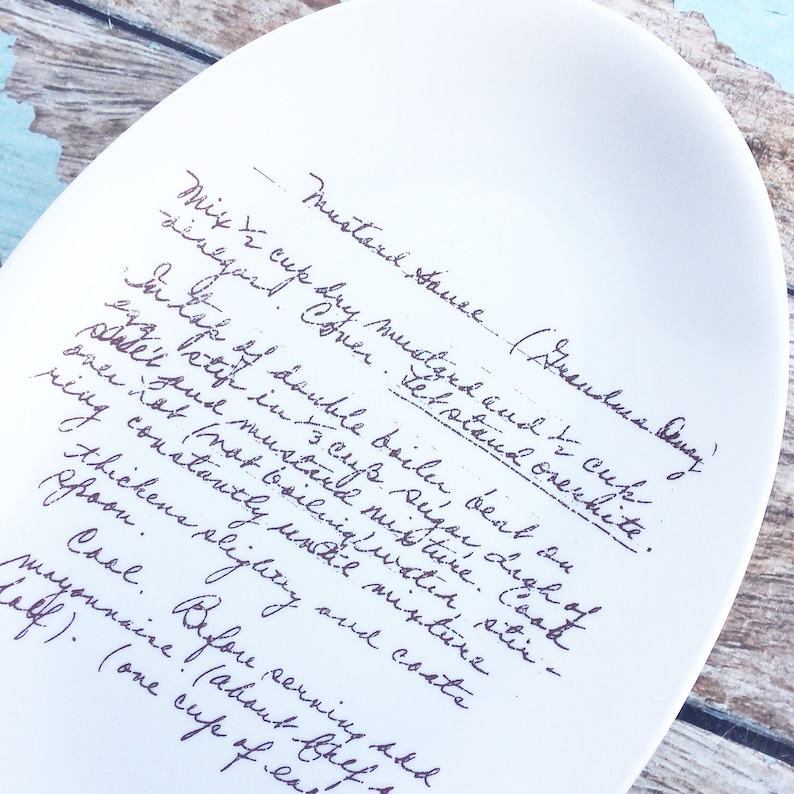 Mustard Sauce (Grandma Denny)
Mix ½ cup dry mustard and ½ cup
vinegar. Cover. Let stand overnite.
In top of double boiler, beat an
egg, stir in ⅓ cup sugar, dash of
salt and mustard mixture. Cook
over hot (not boiling) water, stir-
ring constantly until mixture
thickens slightly and coats
spoon.
Cool. Before serving add
mayonnaise. (about half &
half). (one cup of ea